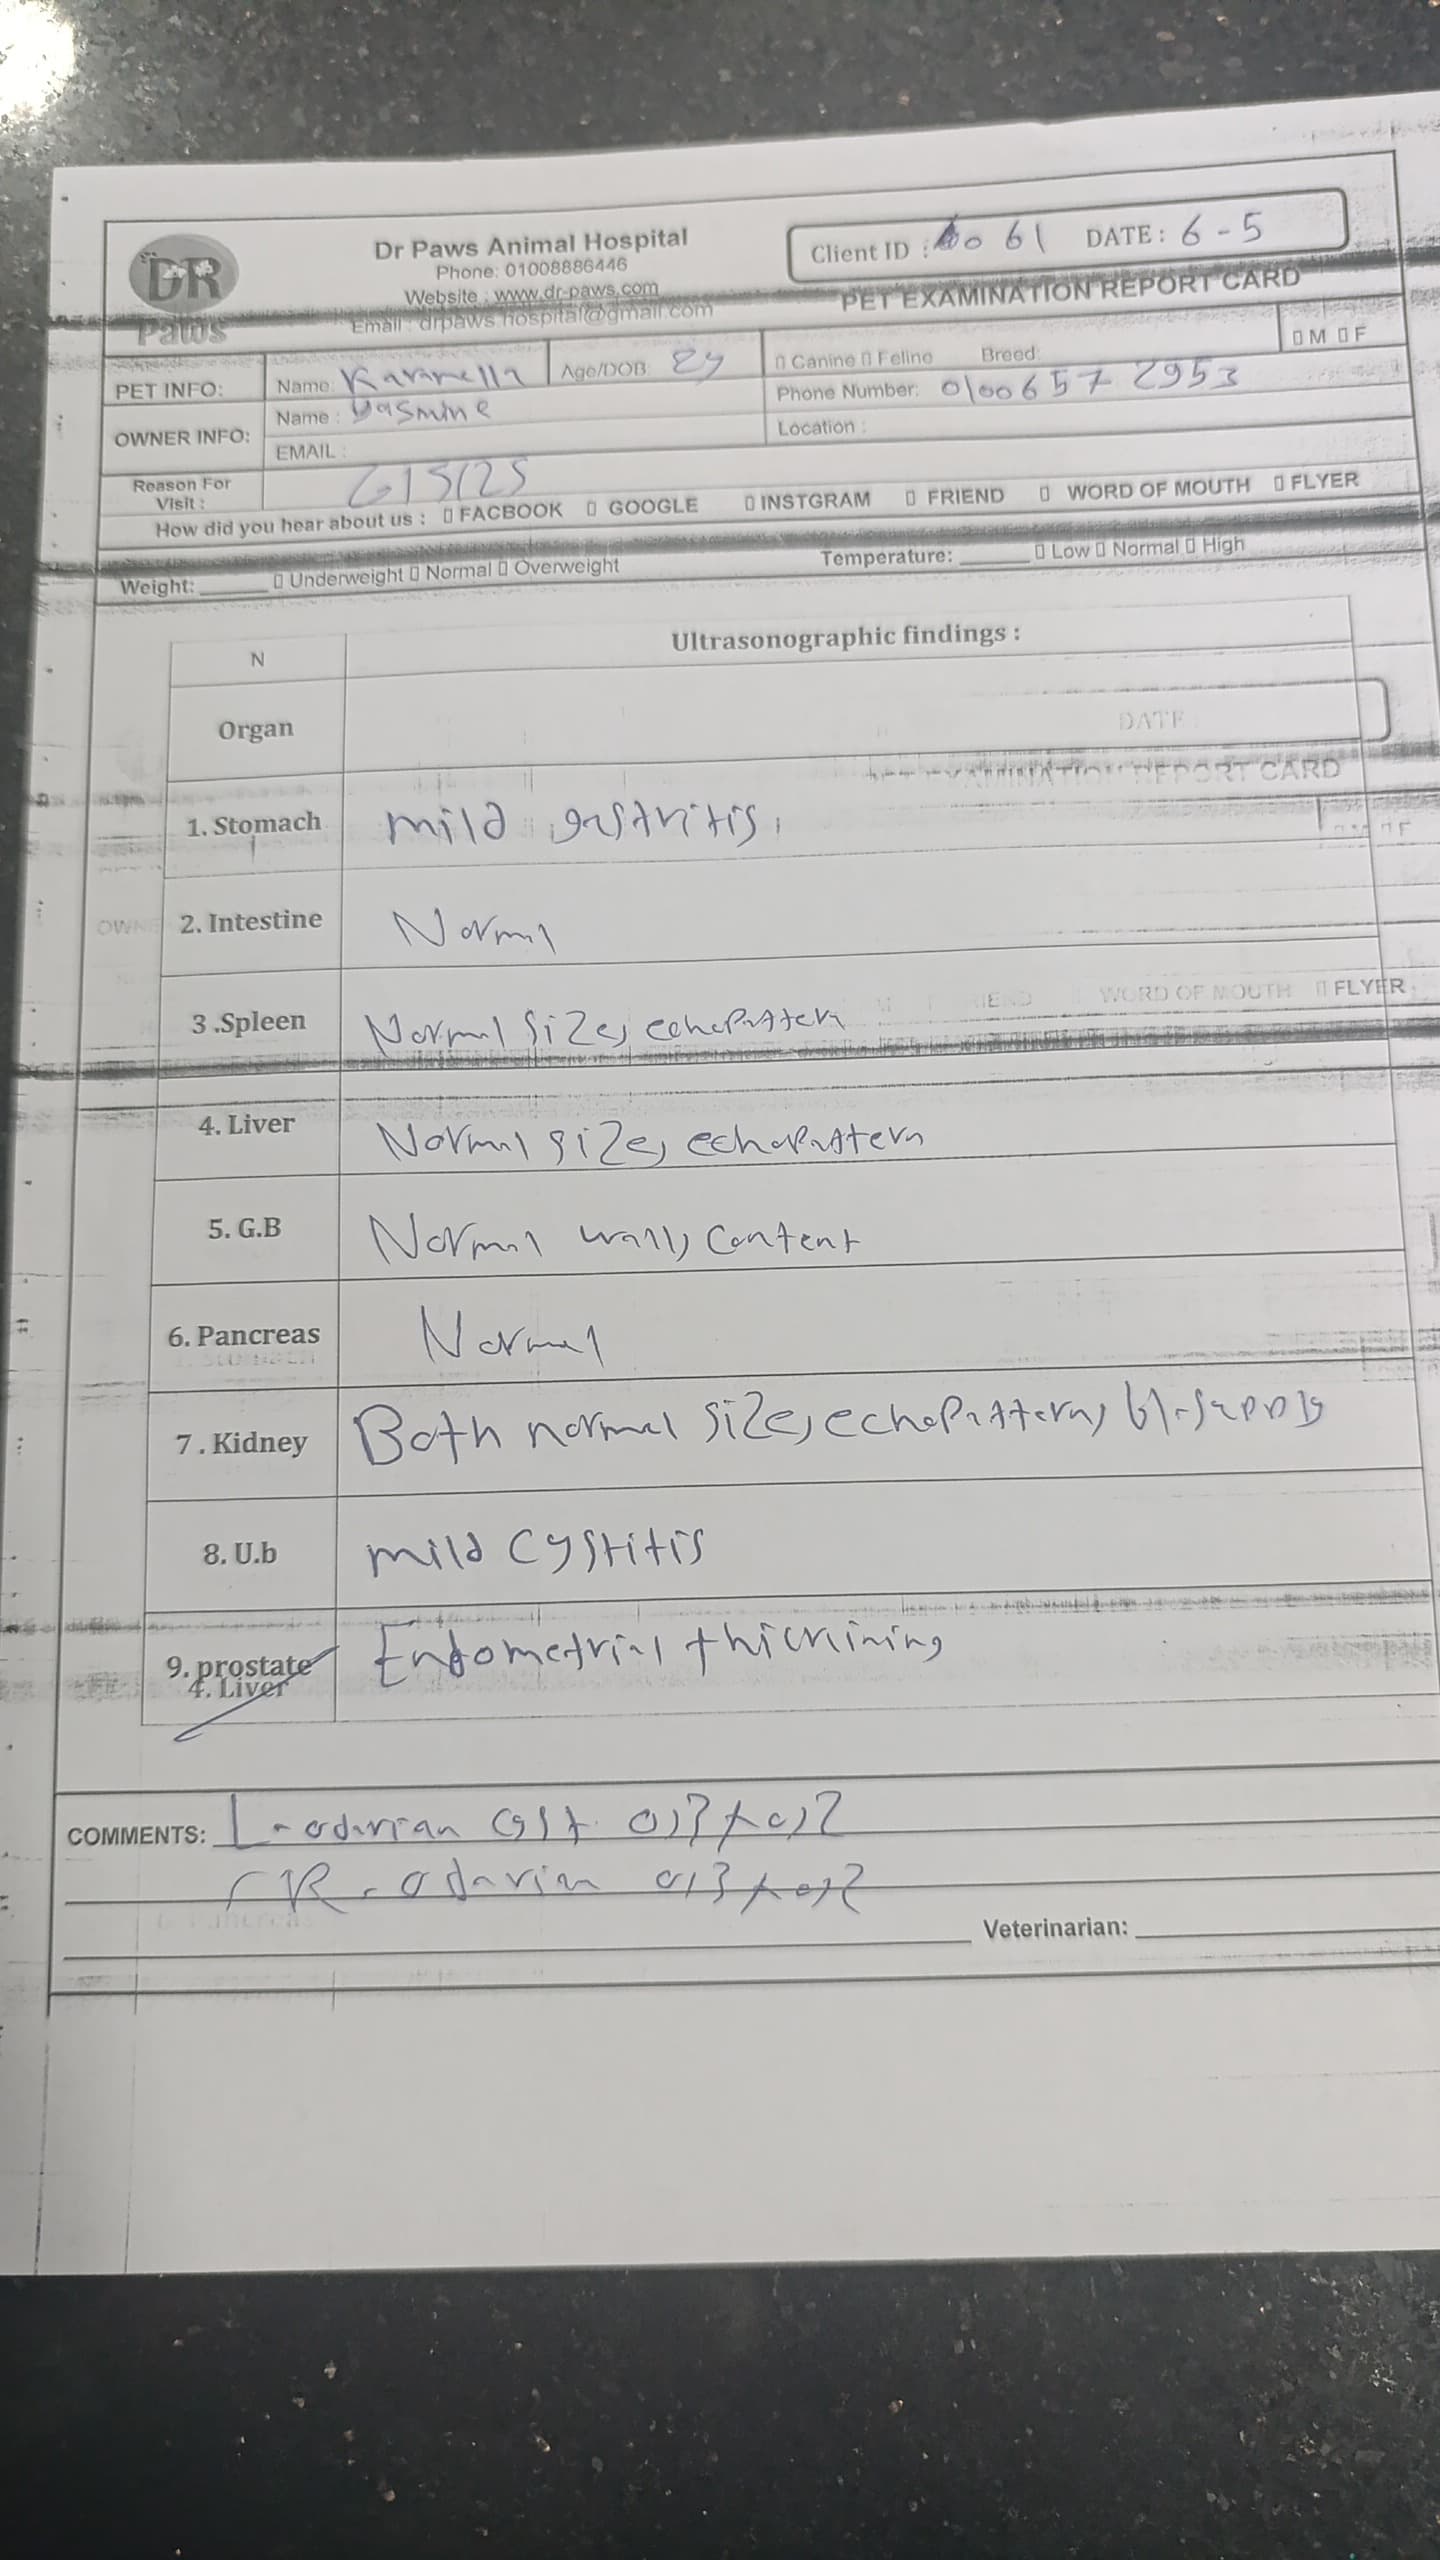 DR
Paws
Dr Paws Animal Hospital
Phone: 01008886446
Website : www.dr-paws.com
Email : drpaws.hospital@gmail.com
Client ID : 61 DATE : 6-5
PET EXAMINATION REPORT CARD
PET INFO: Name: Karamella Age/DOB: 2y Canine Feline Breed: M F
OWNER INFO: Name : Yasmine Phone Number: 01006572953
EMAIL : Location :
Reason For Visit : 6/5/25
How did you hear about us : FACBOOK GOOGLE INSTGRAM FRIEND WORD OF MOUTH FLYER
Weight: Underweight Normal Overweight Temperature: Low Normal High
N Ultrasonographic findings :
Organ DATE
REPORT CARD
1. Stomach mild gastritis
2. Intestine Normal
WORD OF MOUTH FLYER
3 .Spleen Normal size, echopattern
4. Liver Normal size, echopattern
5. G.B Normal wall, content
6. Pancreas Normal
7 . Kidney Both normal size, echopattern, bl-supply
8. U.b mild cystitis
9. prostate Endometrial thickining
4. Liver
COMMENTS: L- cyst
R-
Veterinarian: